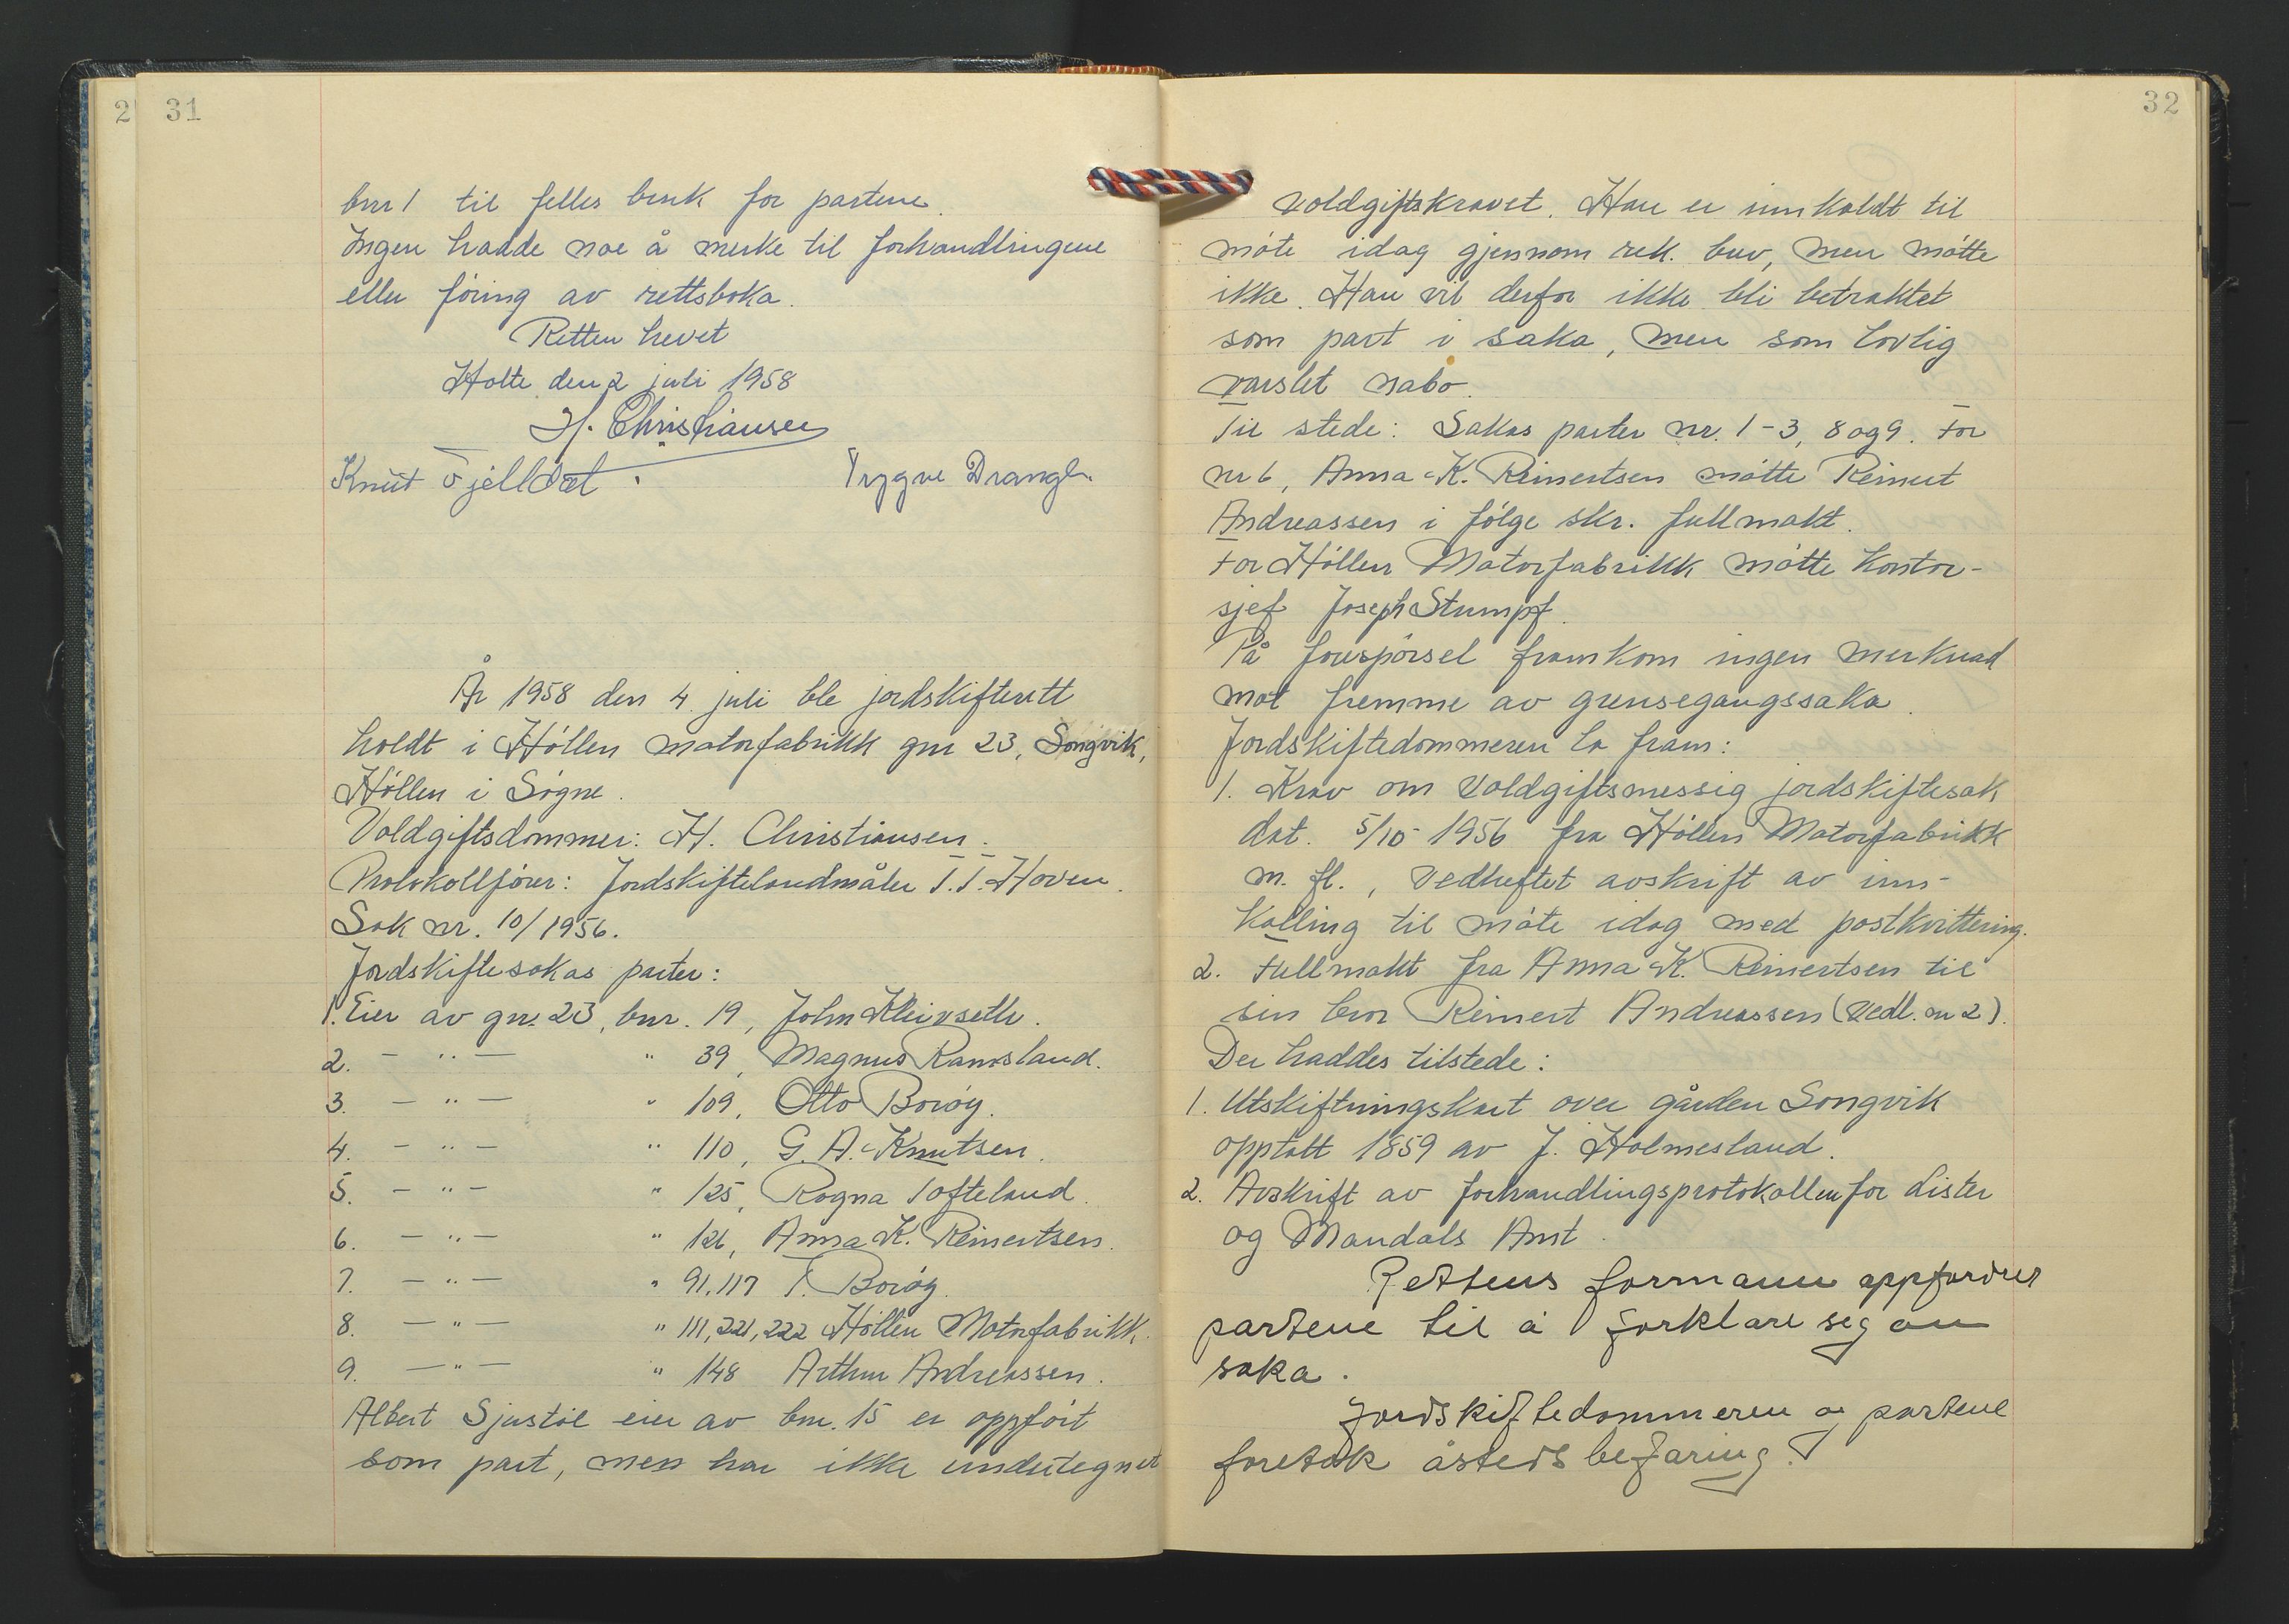 2 31
bnr 1 til felles bruk for partene.
Ingen hadde noe å merke til forhandlingene
eller føring av rettsboka.
Retten hevet
Holte den 2 juli 1958
H. Christiansen
Knut Fjelldal. Trygve Drangh.
År 1958 den 4. juli ble jordskifterett
holdt i Høllen motorfabrikk gnr 23, Songvik,
Høllen i Søgne.
Voldgiftsdommer: H. Christiansen.
Protokollfører: Jordskiftelandmåler T. T. Hoven.
Sak nr. 10/1956.
Jordskiftesakas parter:
1. Eier av gnr. 23, bnr. 19, John Kleivseth.
2. — " — " 39, Magnus Ramsland.
3. — " — " 109, Otto Borøy.
4. — " — " 110, G. A. Knutsen.
5. — " — " 125, Ragna Tofteland.
6. — " — " 126, Anna K. Reinertsen.
7. — " — " 91, 117 T. Borøy.
8. — " — " 111, 221, 222 Høllen Motorfabrikk.
9. — " — " 148 Arthur Andreassen.
Albert Sjustøl eier av bnr. 15 er oppført
som part, men har ikke undertegnet
32
voldgiftskravet. Han er innkaldt til
møte idag gjennom rek. brev, men møtte
ikke. Han vil derfor ikke bli betraktet
som part i saka, men som lovlig
varslet nabo.
Til stede: Sakas parter nr. 1-3, 8 og 9. For
nr 6, Anna K. Reinertsen møtte Reinert
Andreassen i følge skr. fullmakt.
For Høllen Motorfabrikk møtte kontor-
sjef Joseph Stumpf.
På forespørsel framkom ingen merknad
mot fremme av grensegangssaka.
Jordskiftedommeren la fram:
1. Krav om voldgiftsmessig jordskiftesak
dat. 5/10 1956 fra Høllen Motorfabrikk
m. fl., vedheftet avskrift av inn-
kalling til møte idag med postkvittering.
2. Fullmakt fra Anna K. Reinertsen til
sin bror Reinert Andreassen (Vedl. nr 2).
Der haddes tilstede:
1. Utskiftningskart over gården Songvik
opptatt 1859 av J. Holmesland.
2. Avskrift av forhandlingsprotokollen for Lister
og Mandals Amt.
Rettens formann oppfordrer
partene til å forklare seg om
saka.
Jordskiftedommeren og partene
foretok åstedsbefaring.